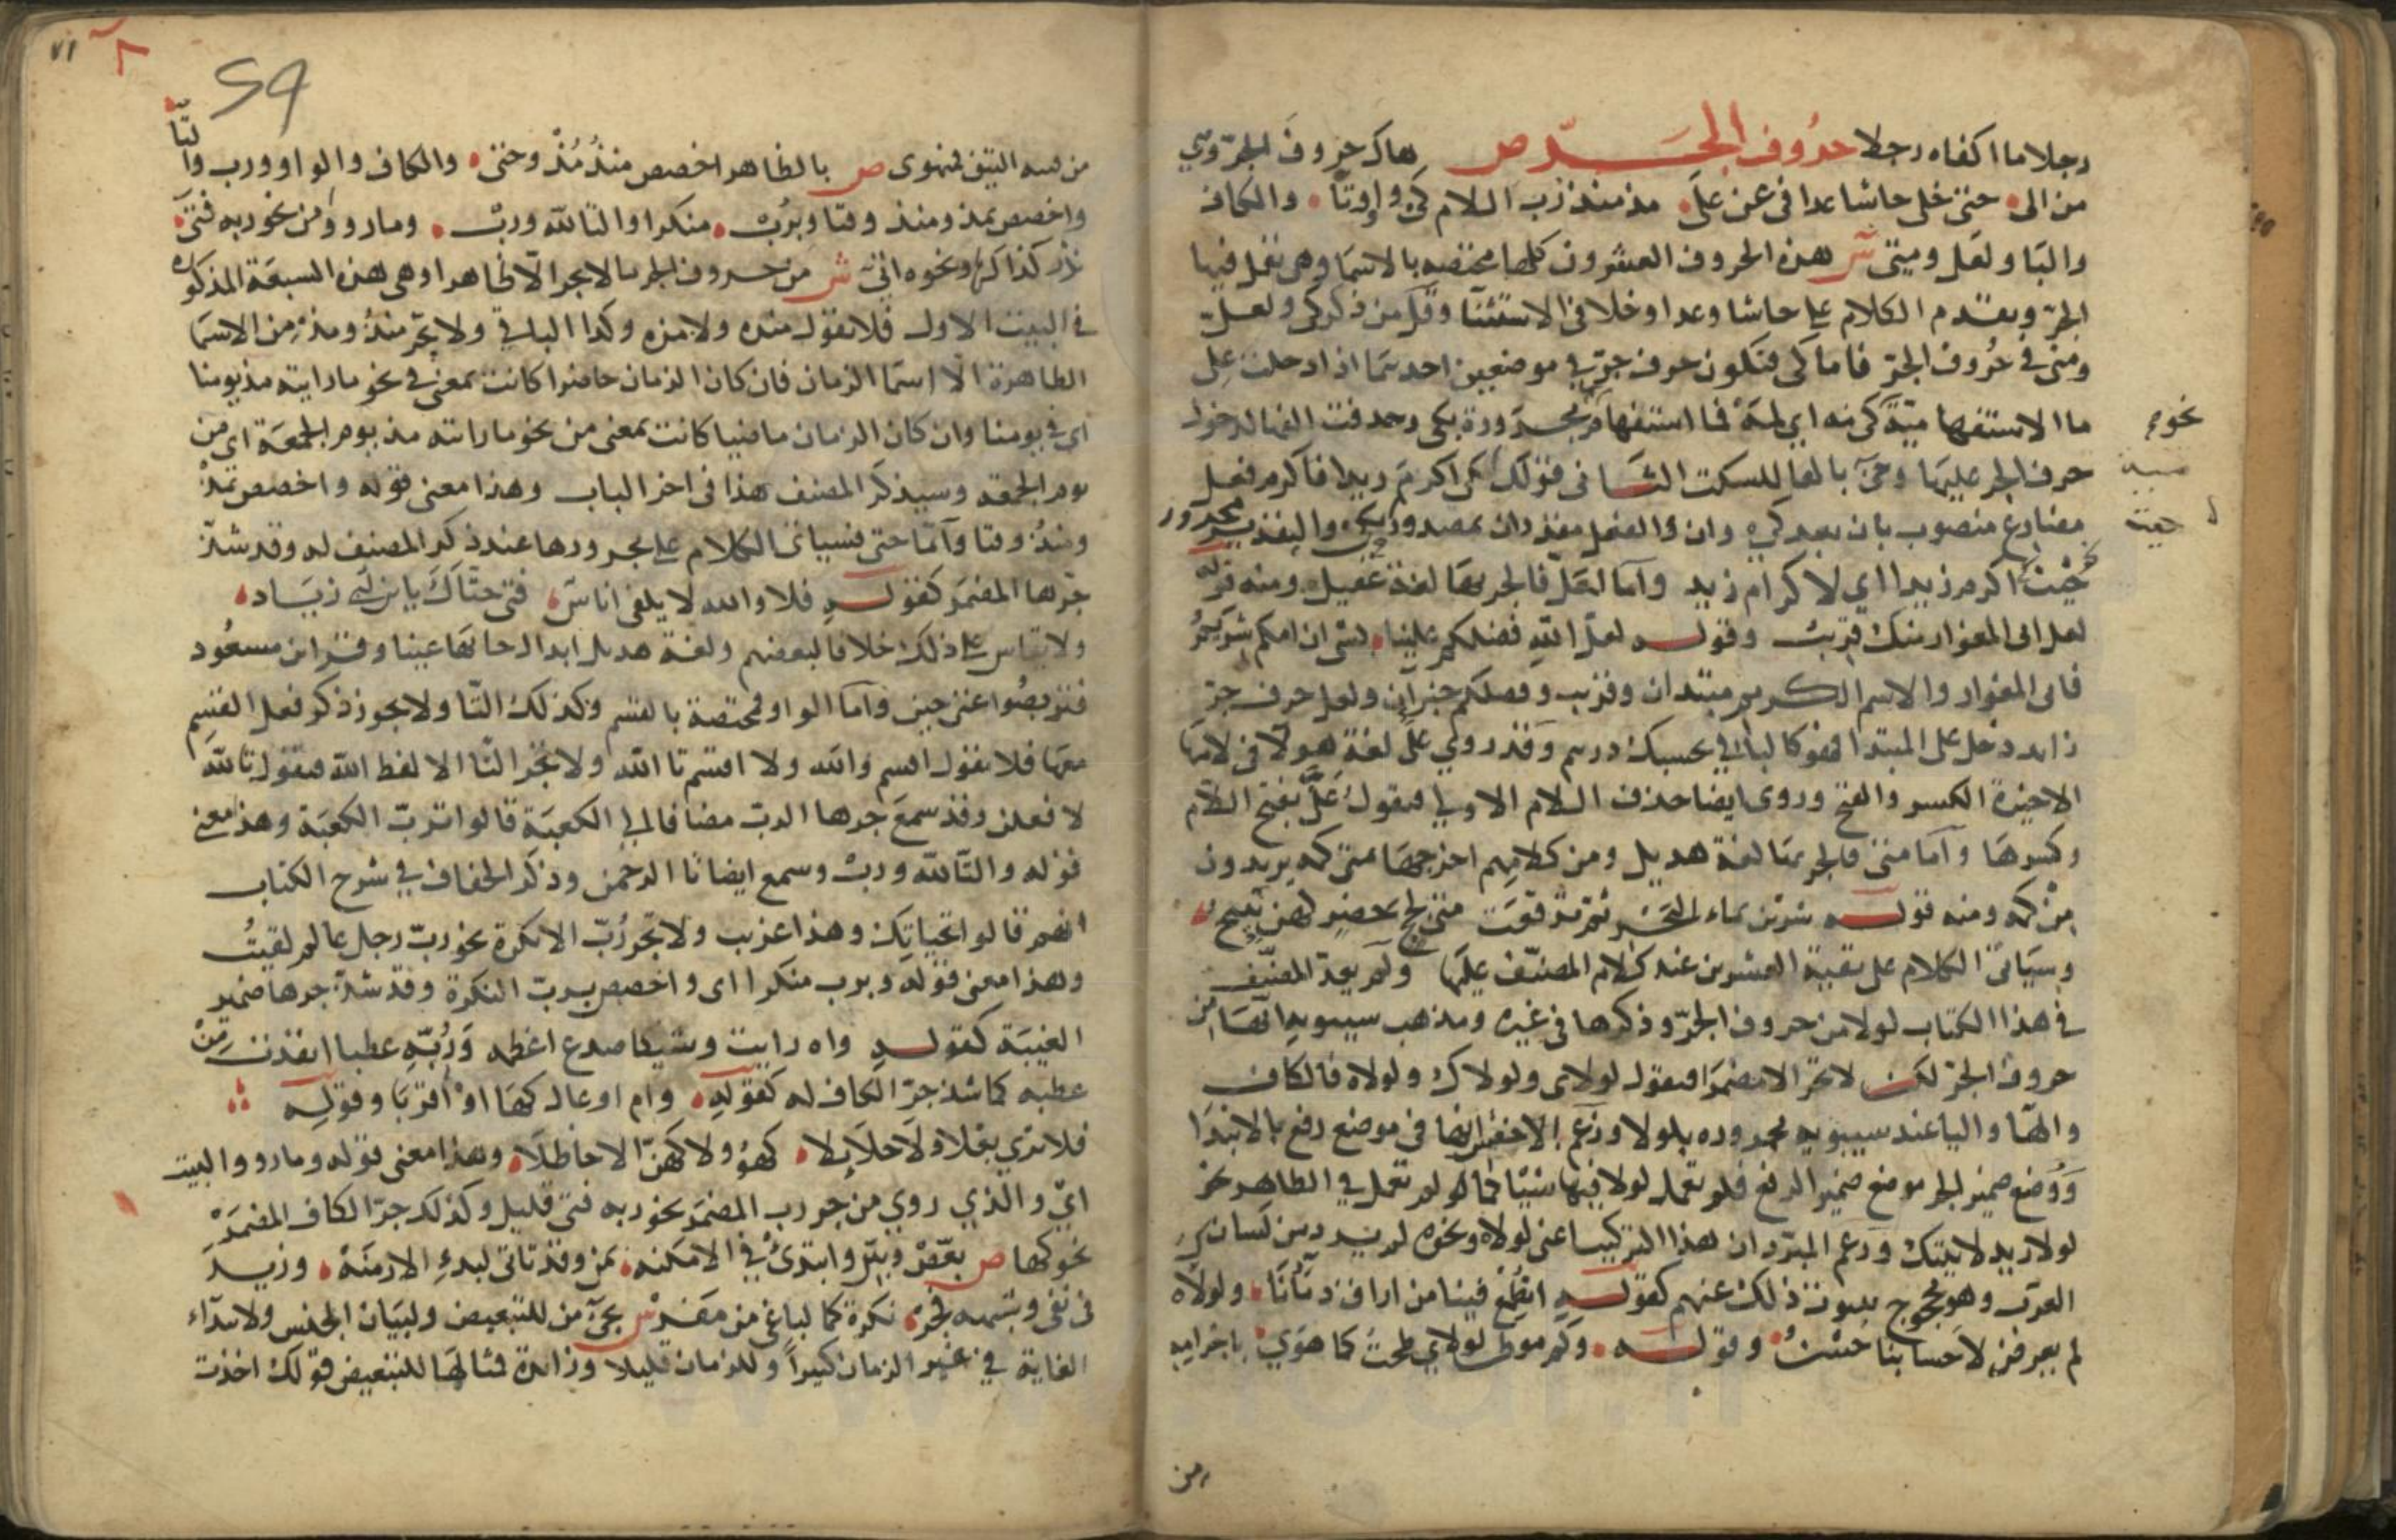 رجلا ما اكفاه رجلا حروف الجر ص هاك حروف الجر وهي
من الى حتى خلى حاشا عدا في عن على مذ منذ رب اللام كي واو وتا والكاف
والبا ولعل ومتى ش هذه الحروف العشرون كلها مختصه بالاسما وهي تعمل فيها
الجر وتقدم الكلام على حاشا وعدا وخلا في الاستثنا وقل من ذكر كي ولعل
ومتى في حروف الجر فاما كي فتكون حرف جر في موضعين احدهما اذا دخلت على
ما الاستفهامية كي مه اي لمه فما استفهام مجرورة بكي وحذفت الفها لدخول
حرف الجر عليها وجئ بالها للسكت الثاني قولك كي اكرم زيدا فاكرم فعل
مضارع منصوب بان بعد كي وان والفعل مقدران بمصدور مجرور بكي والتقدير
جئت اكرم زيدا اي لاكرام زيد واما لعل فالجر بها لغة عقيل ومنه قوله
لعل ابى المغوار منك قريب وقوله لعل الله فضلكم علينا بشى ان امكم شريم
فابى المغوار والاسم الكريم مبتدان وقريب وفضلكم خبران ولعل حرف جر
زايد دخل على المبتدا فهو كالبا في بحسبك درهم وقد روي على لغة هولا في لامها
الاخيرة الكسر والفتح وروى ايضا حذف اللام الاولى فيقول عل بفتح اللام
وكسرها واما متى فالجر بها لغة هديل ومن كلامهم اخرجها متى كمه يريدون
من كمه ومنه قوله شربن بماء البحر ثم ترفعت متى لجج خضر لهن نئيج
وسياتى الكلام على بقية العشرين عند كلام المصنف عليها ولم يعد المصنف
في هذا الكتاب لولا من حروف الجر وذكرها في غيره ومذهب سيبويه انها من
حروف الجر لكن لا تجر الا مضمرا فيقول لولاى ولولاك ولولاه فالكاف
والها واليا عند سيبويه مجروره بلولا وزعم الاخفش انها في موضع رفع بالابتدا
ووضع ضمير الجر موضع ضمير الرفع فلم تعمل لولا فيها شيئا كما لو لم تعمل في الظاهر نحو
لولا زيد لاتيتك وزعم المبرد ان هذا التركيب اعنى لولاه ونحوه لم يرد من لسان
العرب وهو محجوج بثبوت ذلك عنهم كقوله اتطمع فينا من اراق دماءنا ولولاه
لم يعرض لاحسابنا حسن وقوله وكم موطن لولاي طحت كما هوى باجرامه
نحو
من
من قنة النيق منهوى ص بالظاهر اخصص منذ مذ وحتى والكاف والواو ورب والتا
واخصص بمذ ومنذ وقتا وبرب منكرا والتا لله ورب وما رووا من نحو ربه فتى
نزر كذا كها ونحوه اتى ش من حروف الجر ما لا يجر الا ظاهرا وهى هذه السبعة المذكورة
في البيت الاول فلا تقول منذه ولا مذه وكذا الباقي ولا يجر منذ ومذ من الاسما
الظاهرة الا اسما الزمان فان كان الزمان حاضرا كانت بمعنى في نحو ما رايته مذ يومنا
اي في يومنا وان كان الزمان ماضيا كانت بمعنى من نحو ما رايته مذ يوم الجمعة اى من
يوم الجمعه وسيذكر المصنف هذا فى اخر الباب وهذا معنى قوله واخصص بمذ
ومنذ وقتا واما حتى فسياتى الكلام على مجرورها عند ذكر المصنف له وقد شذ
جرها المضمر كقوله فلا والله لا يلفى اناس فتى حتاك يابن ابى زياد
ولا يقاس على ذلك خلافا لبعضهم ولغة هديل ابدال حائها عينا وقرا ابن مسعود
فتربصوا عتى حين واما الواو فمختصة بالقسم وكذلك التا ولا يجوز ذكر فعل القسم
معها فلا تقول اقسم والله ولا اقسم تا الله ولا تجر التا الا لفظ الله فيقول تالله
لافعلن وقد سمع جرها الرب مضافا الى الكعبة قالوا ترب الكعبة وهذ معنى
قوله والتا لله ورب وسمع ايضا تا الرحمن وذكر الخفاف في شرح الكتاب
انهم قالوا تحياتك وهذا غريب ولا تجر رب الا نكرة نحو رب رجل عالم لقيت
وهذا معنى قوله وبرب منكرا اى واخصص برب النكرة وقد شذ جرها ضمير
الغيبة كقوله واه رايت وشيكا صدع اعظمه وربه عطبا انقذت من
عطبه كما شذ جر الكاف له كقوله وام اوعال كها او اقربا وقوله
فلا ترى بعلا ولا حلايلا كهو ولا كهن الا حاظلا وهذا معنى قوله وما رووا البيت
اي والذي روي من جر رب المضمر نحو ربه فتى قليل وكذلك جر الكاف المضمر
نحو كها ص بعض وبين وابتدئ في الامكنه بمن وقد تاتى لبدء الازمنه وزيد
في نفى وشبهه فجر نكرة كما لباغ من مفر ش تجئ من للتبعيض ولبيان الجنس ولابتداء
الغاية في غير الزمان كثيرا وللزمان قليلا وزائدة فمثالها للتبعيض قولك اخذت
٧١